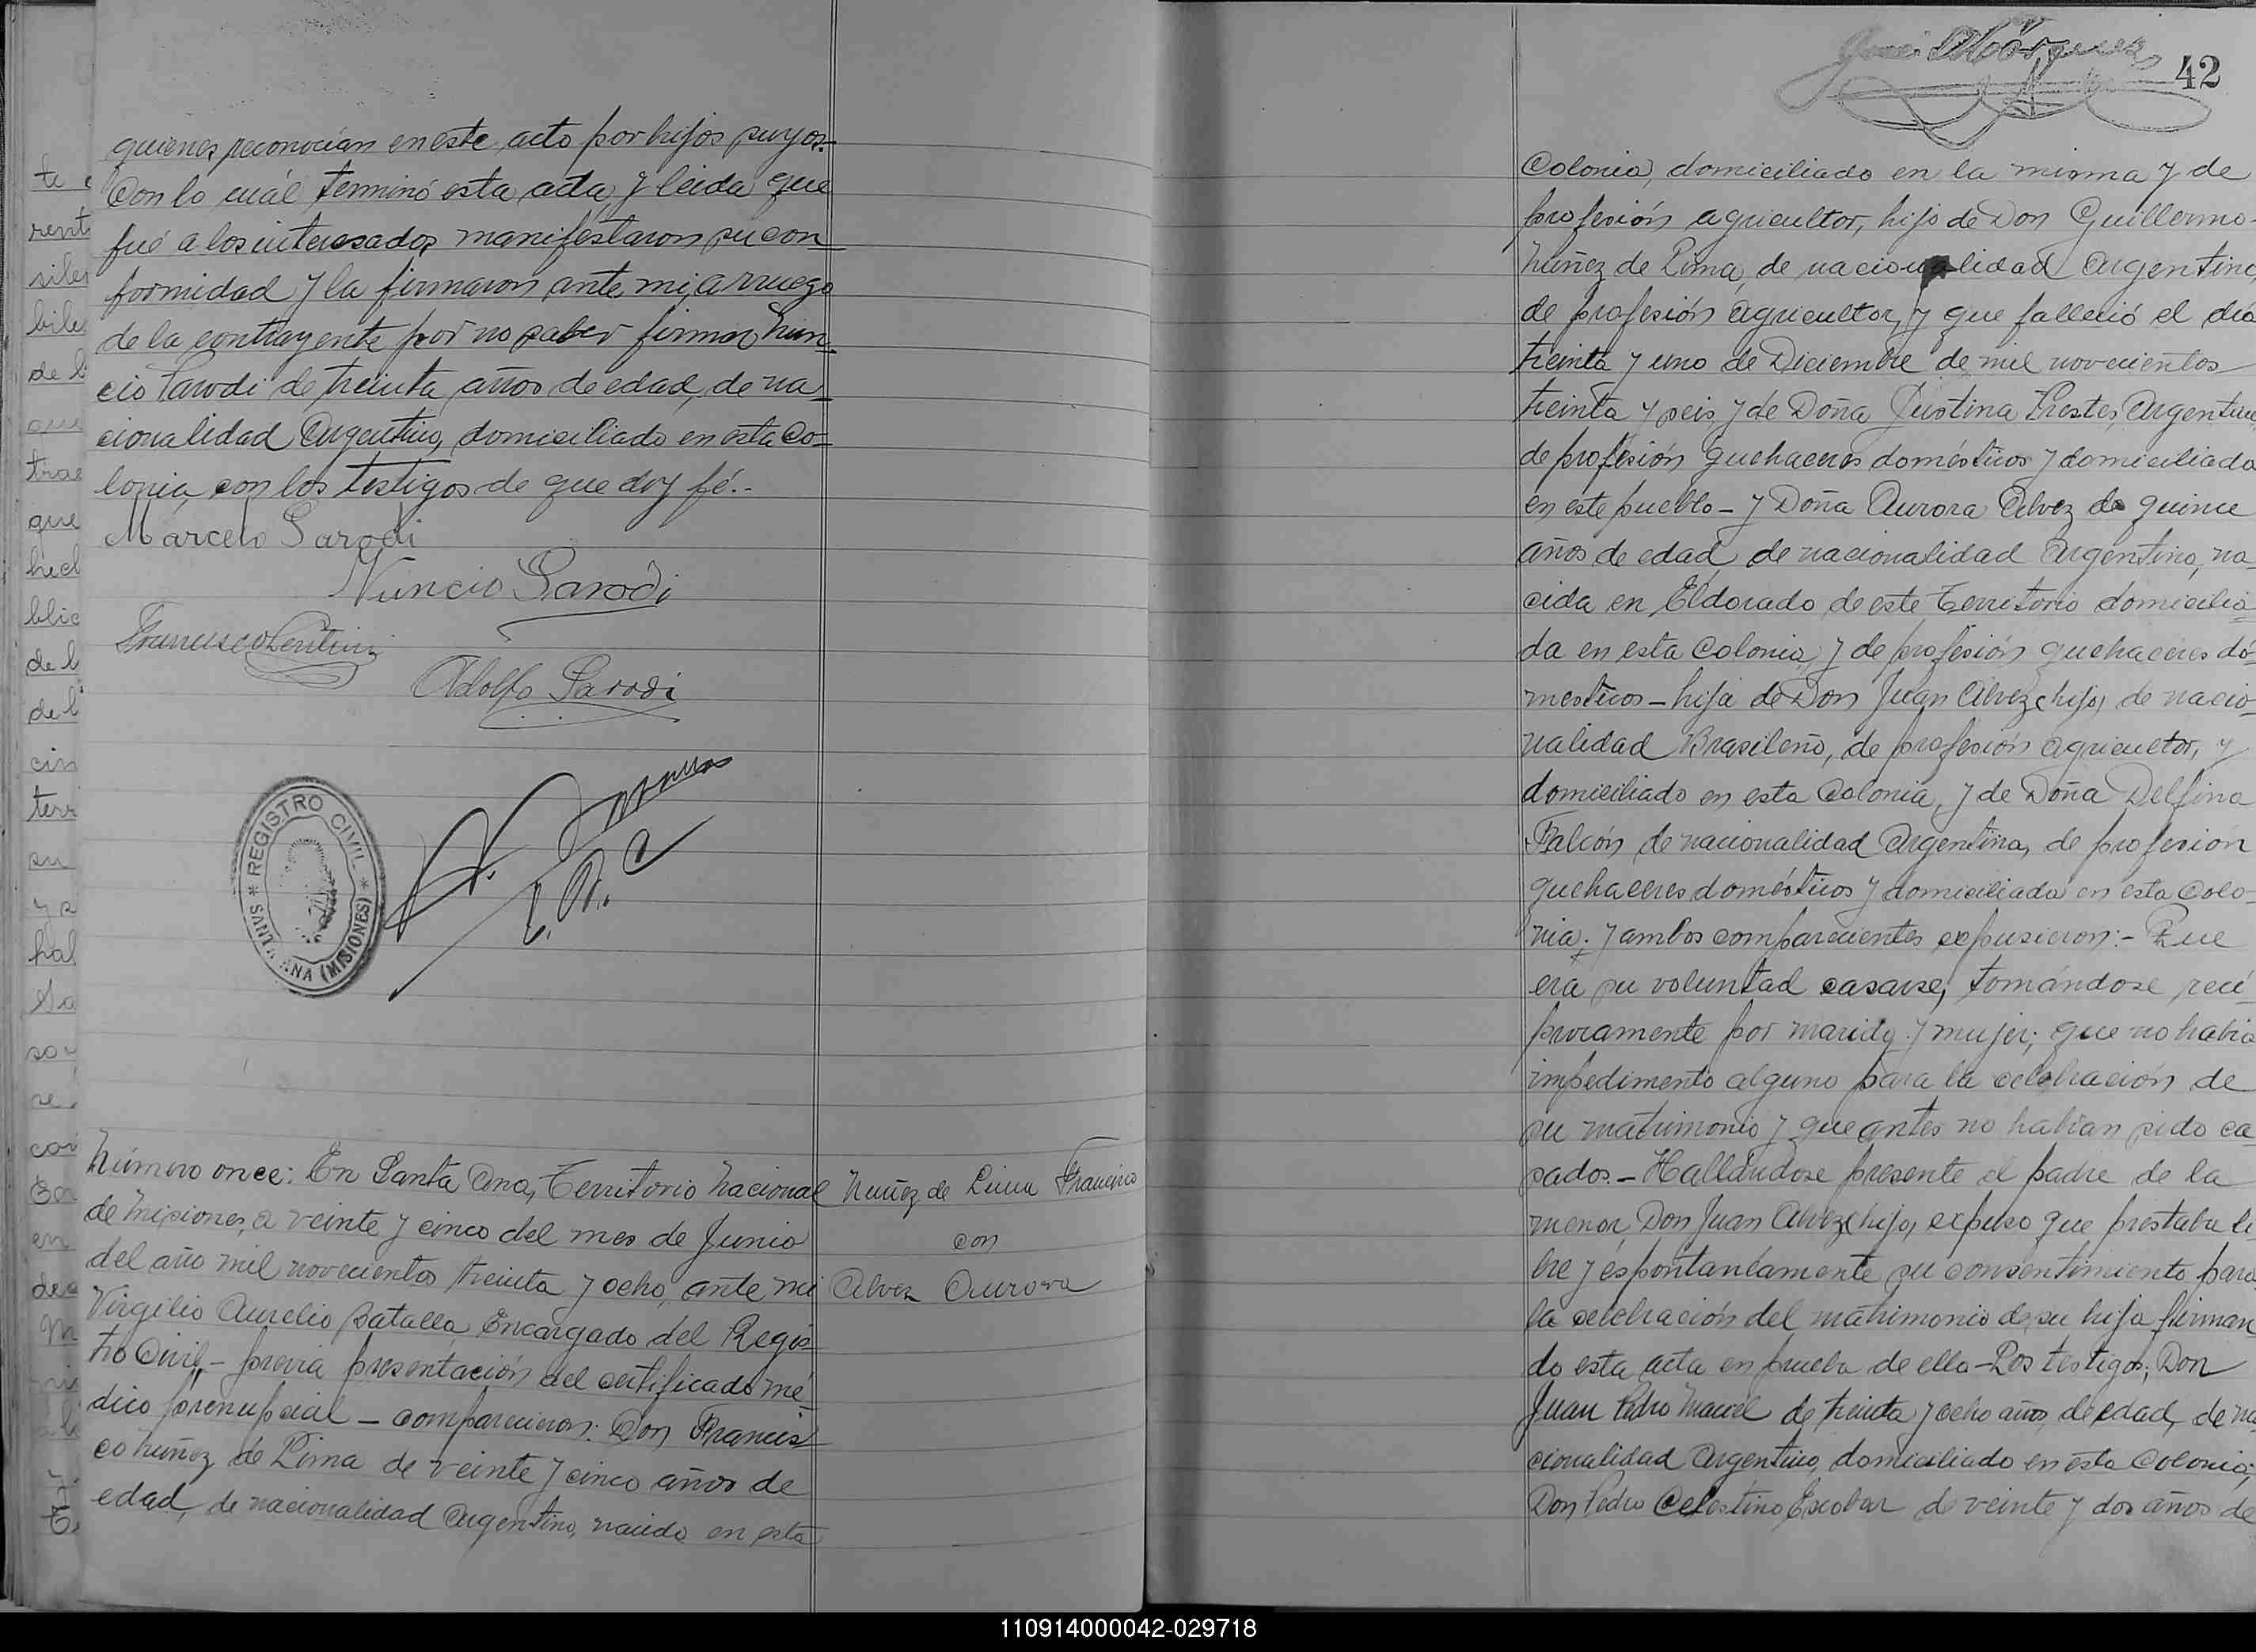 quienes reconocían en este acto por hijos suyos.-
Con lo cuál terminó esta acta, y leida que
fué a los interesados, manifestaron su con
formidad y la firmaron ante mi, a rruego
de la contrayente por no saber firmar Nun-
cio Sarodi de treinta años de edad, de na-
cionalidad Argentino, domiciliado en esta Co-
lonia, con los testigos de que doy fé.-
Marcelo Sarodi
Nuncio Sarodi
Adolfo Sarodi
* REGISTRO CIVIL *
SANTA ANA (MISIONES)
Número once: En Santa Ana, Territorio Nacional
de Misiones, a veinte y cinco del mes de Junio
del año mil novecientos treinta y ocho, ante mi
Virgilio Aurelio Batalla Encargado del Regis-
tro Civil,- previa presentación del certificado mé-
dico prenupcial - comparecieron: Don Francis-
co Nuñez de Lima de veinte y cinco años de
edad, de nacionalidad Argentino, nacido en esta
Nuñez de Lima Francisco
con
Alvez Aurora
42
Colonia, domiciliado en la misma y de
profesión agricultor, hijo de Don Guillermo
Nuñez de Lima, de nacionalidad Argentino,
de profesión agricultor, y que falleció el día
treinta y uno de Diciembre de mil novecientos
treinta y seis, y de Doña Justina Prestes, Argentina,
de profesión quehaceres domésticos y domiciliada
en este pueblo - y Doña Aurora Alvez de quince
años de edad, de nacionalidad Argentina, na-
cida en Eldorado de este Territorio domicilia-
da en esta Colonia, y de profesión quehaceres dó-
mesticos - hija de Don Juan Alvez (hijo) de nacio-
nalidad Brasileño, de profesión agricultor, y
domiciliado en esta Colonia, y de Doña Delfina
Falcón de nacionalidad Argentina, de profesion
quehaceres domésticos y domiciliada en esta Colo-
nia; y ambos comparecientes expusieron:- Que
era su voluntad casarse, tomándose recí-
procamente por marido y mujer; que no había
impedimento alguno para la celebración de
su matrimonio y que antes no habían sido ca
sados.- Hallándose presente el padre de la
menor, Don Juan Alvez (hijo) expuso que prestaba li-
bre y espontaneamente su consentimiento para
la celebración del matrimonio de su hija firman
do esta acta en prueba de ello - Los testigos; Don
Juan Pedro Maciel de treinta y ocho años, de edad, de na
cionalidad Argentino, domiciliado en esta Colonia;
Don Pedro Celestino Escobar de veinte y dos años de
110914000042-029718